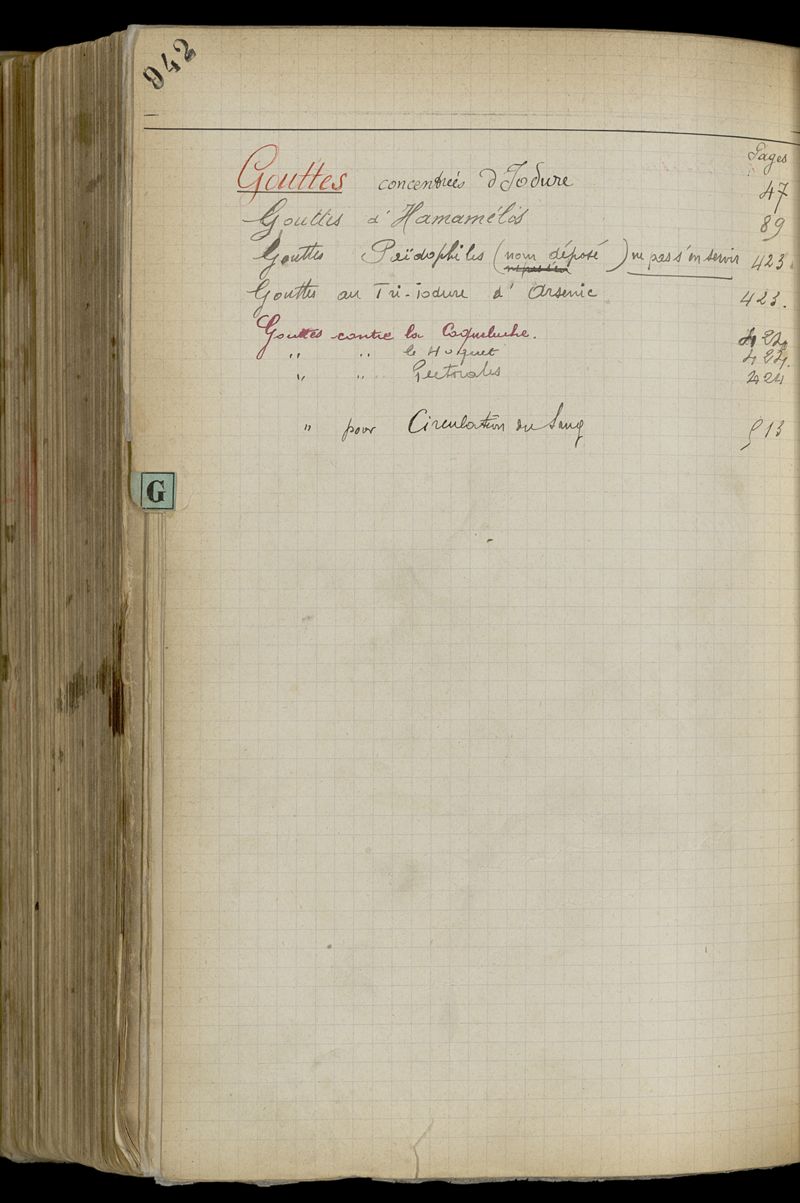 942
Pages
Gouttes concentrées d'Iodure 47
Gouttes d'Hamamélis 89
Gouttes Païdophiles (nom déposé) ne pas s'en servir 423
Gouttes au Tri-iodure d'Arsenic 423.
Gouttes contre la Coqueluche. 424
" " le Hoquet 424.
" " Pectorales 424
" pour Circulation du Sang 513
G